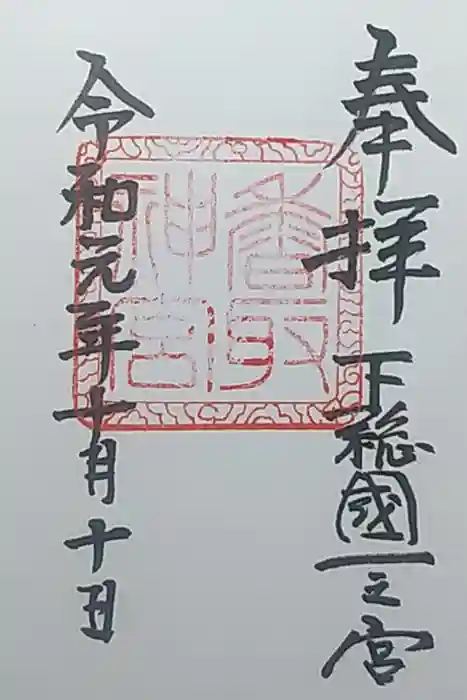 奉拝
下総國一之宮
香取
神宮
令和元年十月十日